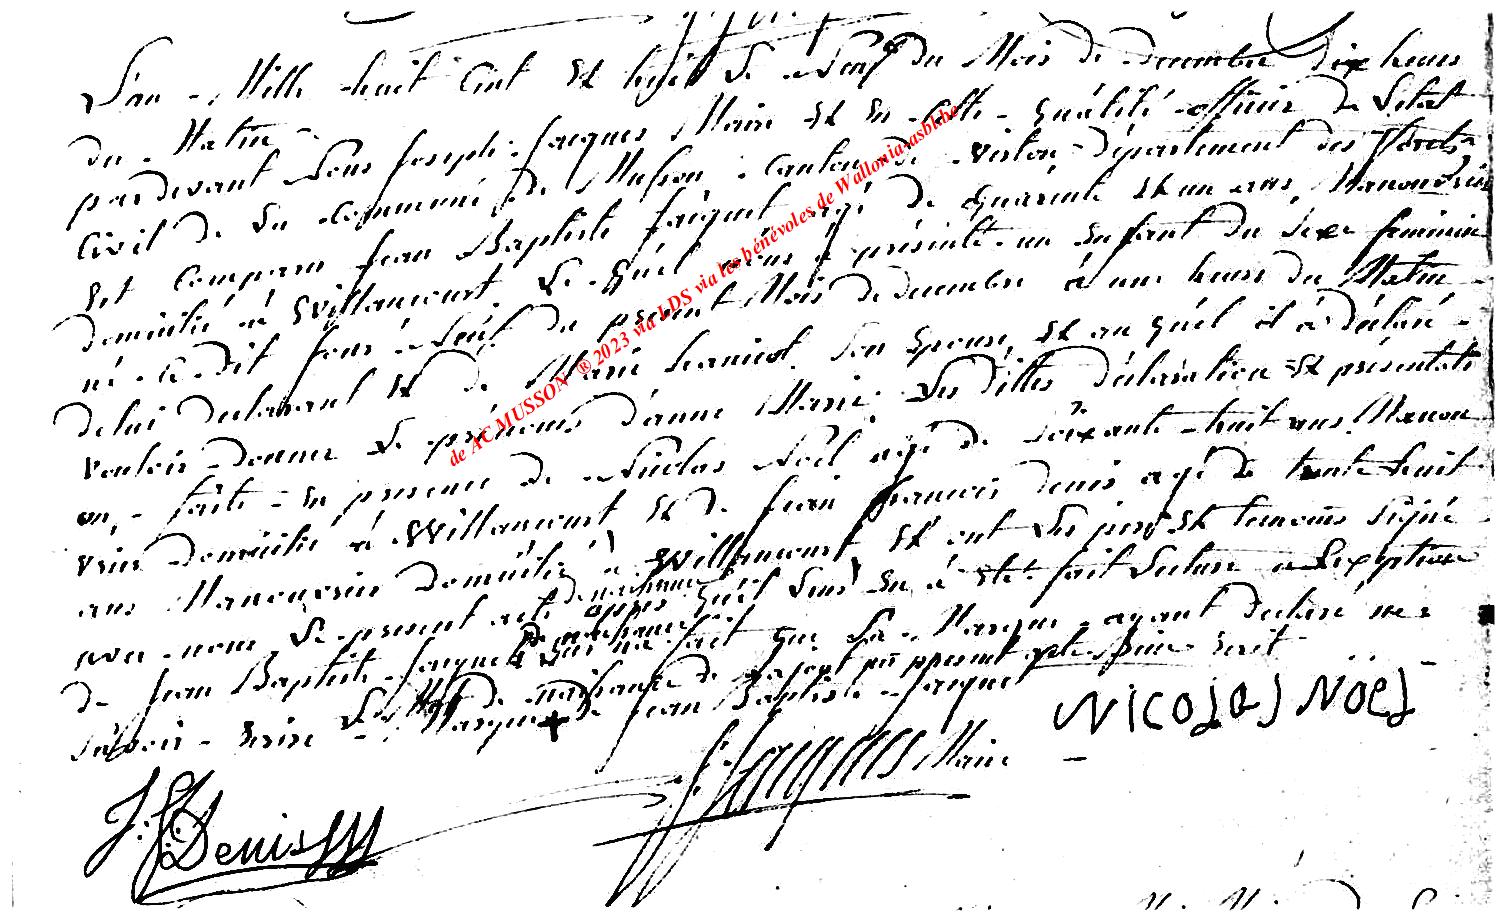 L'an Mille huit Cent et huit Le Neuf du Mois de decembre dix heures du Matin
pardevant Nous Joseph Jacques Maire et en cette quálité officier de L'etat
Civil de La Commune de Musson Canton de Virton département des forets
est Comparu Jean Baptiste Jacquet agé de quarante et un ans, Manouvrier
domicilié à Willancourt, Le quel nous à présenté un Enfant du Sexe feminin
né ce dit jour Neuf du présent Mois de decembre à une heure du Matin
de lui declarant et de Marie son Epouse, et au quél il à déclaré
vouloir donner Le prénoms d'anne Marie, Les dittes déclaration et présentati
on, faite en presence de Nicolas Noël agé de soixante huit ans, Manou
vrier domicilié à Willancourt et de Jean francois denis agé de trente huit
ans Manouvrier domicilié à Willancourt, et ont Les pere et temoins Signé
avec nous Le present acte de naissance appres quél Leurs en à eté fait Lecture a L'exption
de Jean Baptiste Jacquet qui n'a fait que Sa Marque ayant declaré ne
Savoir Ecrire Le Mot de naissance
Marque + de Jean Baptiste Jacquet
NICOLAS NOEL
J: Jacques Maire
J: f: Denis
de AC MUSSON ® 2023 via LDS via les bénévoles de Wallonia-asbl.be